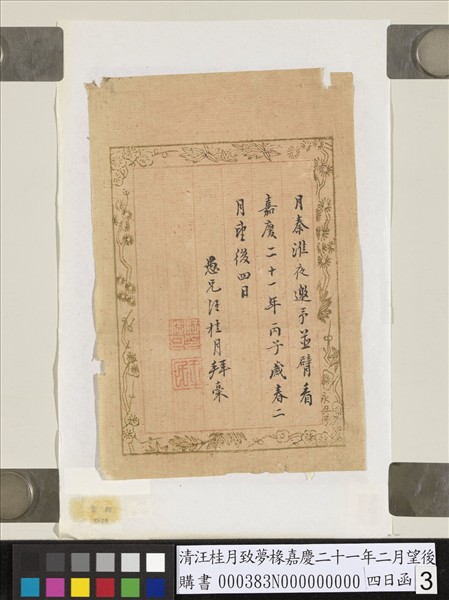 月秦淮夜邀予並臂看
嘉慶二十一年丙子歲春二
月望後四日
愚兄汪桂月拜稾
清汪桂月致夢椽嘉慶二十一年二月望後
購書 000383N000000000 四日函 3